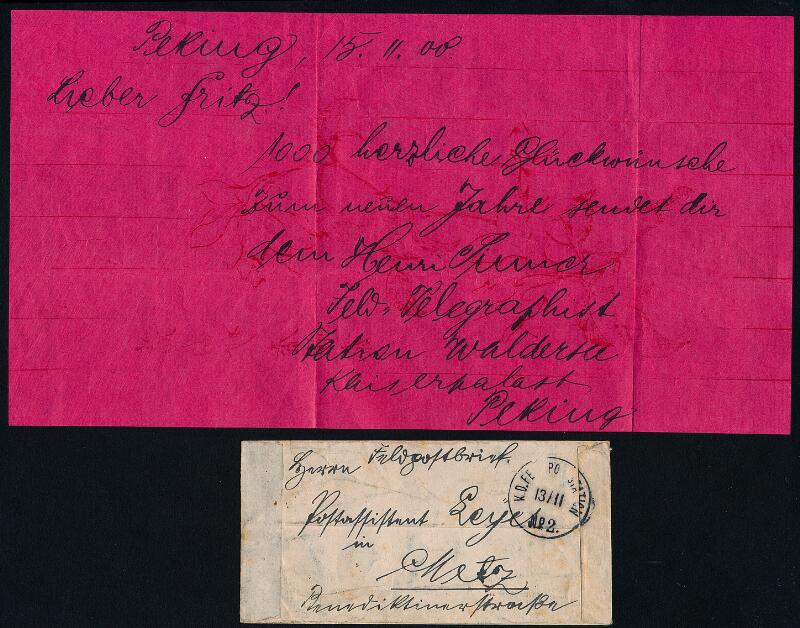 Peking, 15. 11. 00.
Lieber Fritz!
1000 herzliche Glückwünsche
zum neuen Jahre sendet dir
dein Henri
Feld-Telegraphist
Station Waldersee
Kaiserpalast
Peking
Feldpostbrief.
Herrn
Postassistent Leyer
in
Metz
Benediktinerstraße
K.D. FELDPOSTSTATION
13/11
No 2.